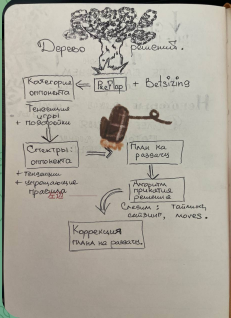 Дерево решений.
Категория
оппонента
PreFlop
+ Betsizing
Тенденция
игры
+ подстройки
Спектры:
оппонента
План на
раздачу
+ тенденции
+ упрощающие
правила
Алгоритм
принятия
решение
Следим: тайминг,
сайзинг, moves.
Коррекция
плана на раздачу.